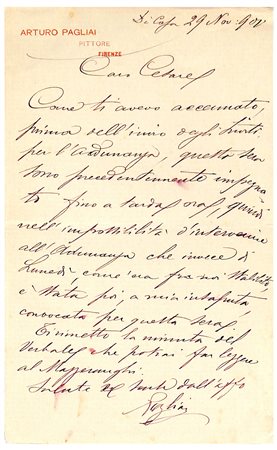 ARTURO PAGLIAI
PITTORE
FIRENZE
Di Casa 29 Nov. 901
Caro Cesare
Come ti avevo accennato,
prima dell'invio degli Inviti
per l'Adunanza, questa sera
sono precedentemente impegna
to fino a tarda ora, quindi
nell'impossibilità d'intervenire
all'Adunanza che invece di
Lunedì, com'era fra noi stabilito,
è stata poi, a mia insaputa,
convocata per questa sera.
Ti rimetto la minuta del
Verbale che potrai far leggere
al
Salute tutti dall'affo
Pagliai